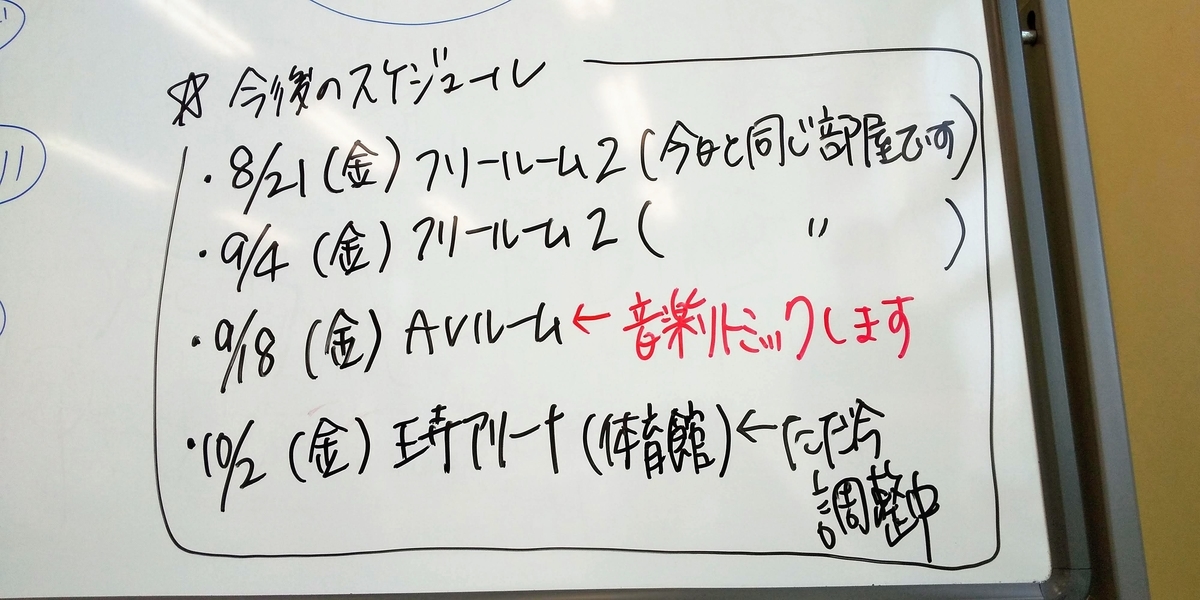 ☆ 今後のスケジュール
・8/21(金) フリールーム2(今日と同じ部屋です)
・9/4(金) フリールーム2( 〃 )
・9/18(金) AVルーム←音楽リトミックします
・10/2(金) 王寺アリーナ(体育館)←ただ今
調整中